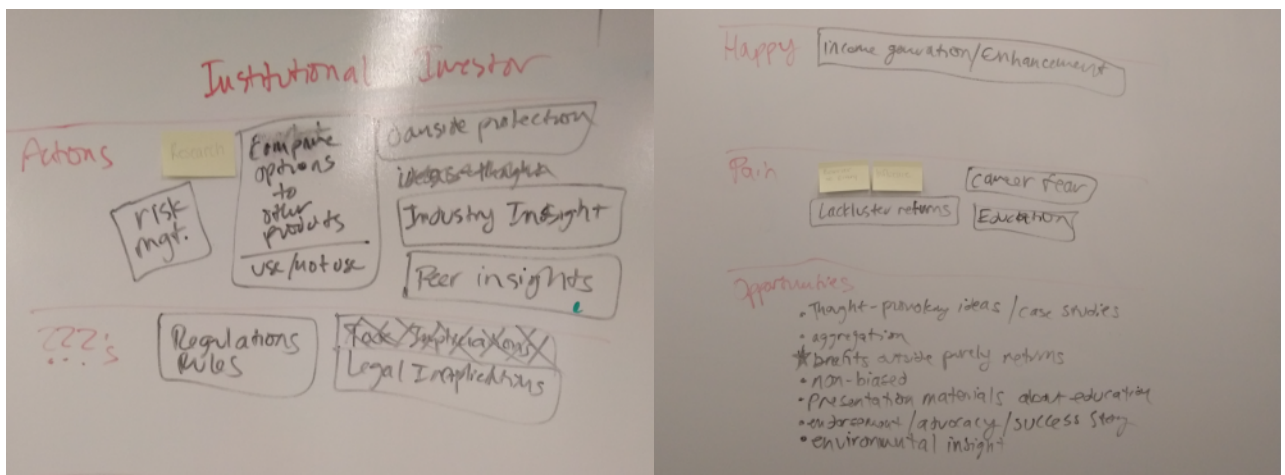 Institutional Investor
Actions
Research
risk
mgt.
Compare
options
to
other
products
use/not use
Downside protection
Industry Insight
Peer insights
???'s
Regulations
Rules
Tax Implications
Legal Implications
Happy
income generation/Enhancement
Pain
career fear
Lackluster returns
Education
Opportunities
• Thought-provoking ideas / case studies
• aggregation
* benefits outside purely returns
• non-biased
• presentation materials about education
• endorsement/advocacy/success story
• environmental insight